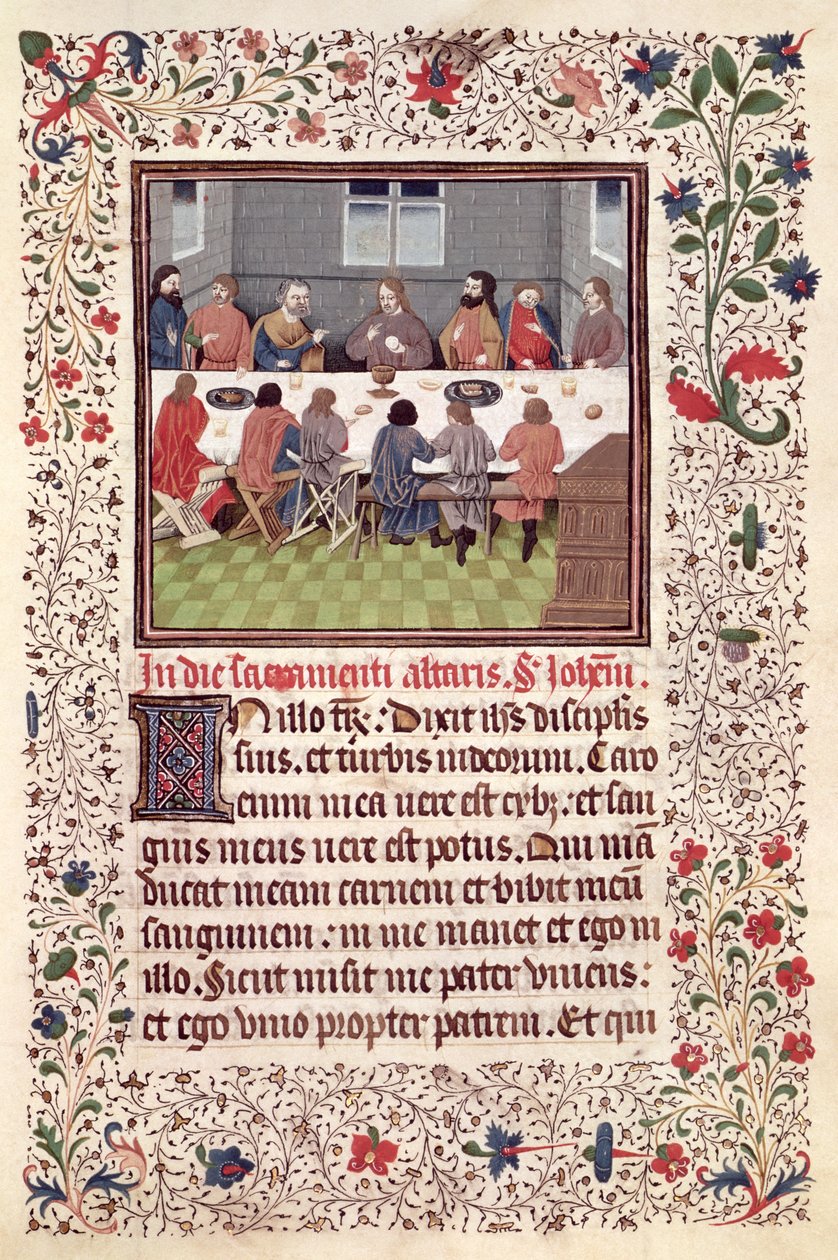 In die sacramenti altaris. S͞ Johe͞m.
In illo tp̄r: Dixit ih̄s discipl̄is
suis. et turbis iudeorum. Caro
enim mea uere est cybꝫ: et san
guis meus uere est potus. Qui mā
ducat meam carnem et bibit meū
sanguinem: in me manet et ego in
illo. Sicut misit me pater viuens:
et ego viuo propter patrem. Et qui